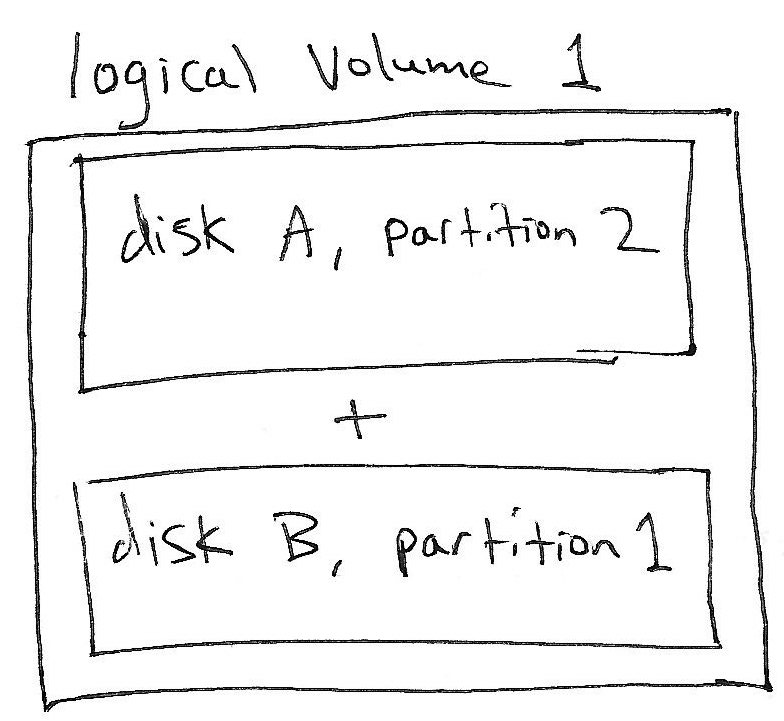 logical Volume 1
disk A, partition 2
+
disk B, partition 1